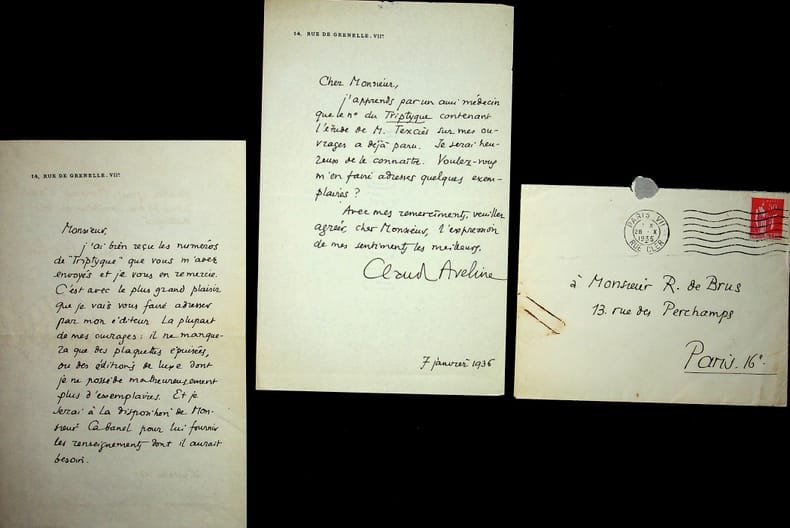 14, RUE DE GRENELLE. VIIe
Monsieur,
j'ai bien reçu les numéros
de "Triptyque" que vous m'avez
envoyés et je vous en remercie.
C'est avec le plus grand plaisir
que je vais vous faire adresser
par mon éditeur la plupart
de mes ouvrages : il ne manque-
ra que des plaquettes épuisées,
ou des éditions de luxe dont
je ne possède malheureusement
plus d'exemplaires. Et je
serai à la disposition de Mon-
sieur Cabanel pour lui fournir
les renseignements dont il aurait
besoin.
14, RUE DE GRENELLE. VIIe
Cher Monsieur,
j'apprends par un ami médecin
que le no du Triptyque contenant
l'étude de M. Texcier sur mes ou-
vrages a déjà paru. Je serai heu-
reux de le connaître. Voulez-vous
m'en faire adresser quelques exem-
plaires ?
Avec mes remerciments, veuillez
agréer, cher Monsieur, l'expression
de mes sentiments les meilleurs.
Claude Aveline
7 janvier 1936
PARIS VII
28 - X
RUE CLER
à Monsieur R. de Brus
13. rue des Perchamps
Paris. 16e.